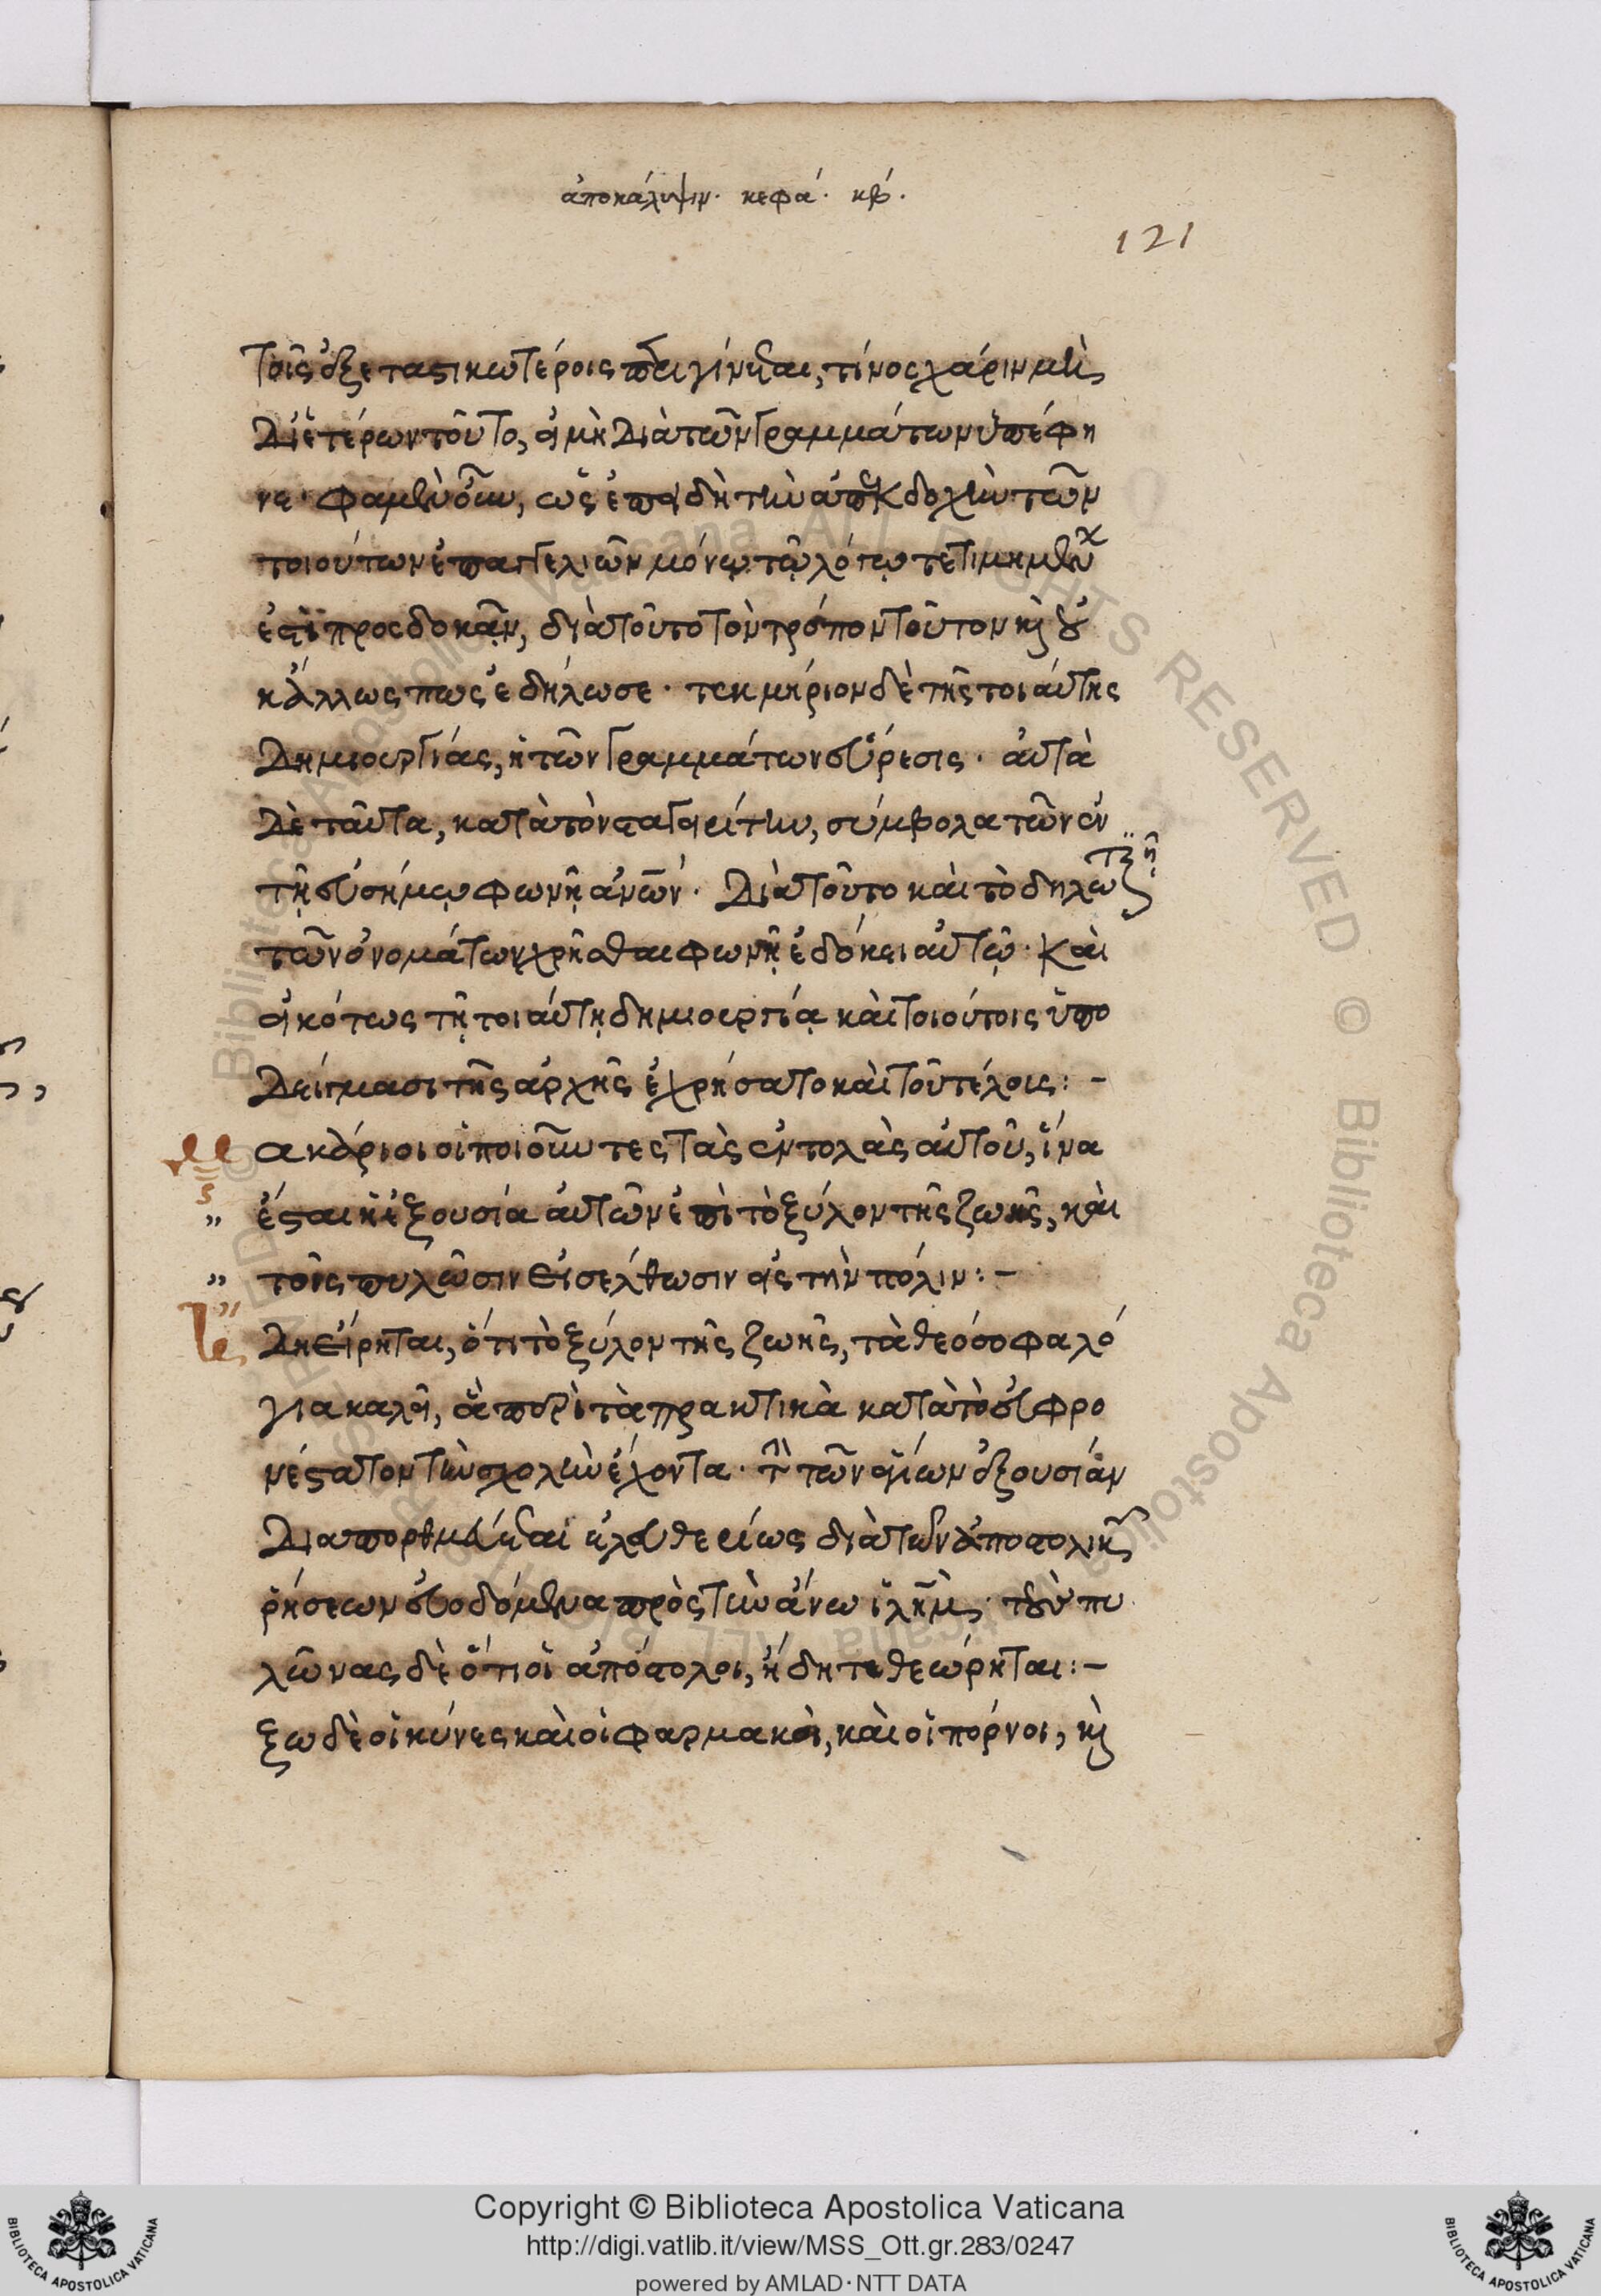 ἀποκάλυψιν. κεφά. κβ.
121
Τοῖς ἐξεταστικωτέροις παραγίνεται, τίνος χάριν μὴ
Δι' ἑτέρων τοῦτο, εἰ μὴ Διὰ τῶν Γραμμάτων ὑπέφη
νε. φαμὲν οὖν, ὡς ἐπειδὴ τὴν ἀπεκδοχὴν τῶν
τοιούτων ἐπαγγελιῶν μόνῳ τῷ λόγῳ τετιμημένων
ἐστὶ προσδοκᾶν, διὰ τοῦτο τὸν τρόπον τοῦτον καὶ οὐ
κ ἄλλως πως ἐδήλωσε. τεκμήριον δὲ τῆς τοιαύτης
Δημιουργίας, ἡ τῶν Γραμμάτων εὕρεσις. αὐτὰ
Δὲ ταῦτα, κατὰ τὸν σταγειρίτην, σύμβολα τῶν ἐν
τῇ εὐσήμῳ φωνῇ ἀνῶν. Διὰ τοῦτο καὶ τὸ δηλω
τῶν ὀνομάτων χρῆσθαι φωνῇ ἐδόκει αὐτῷ. Καὶ
εἰκότως τῇ τοιαύτῃ δημιουργίᾳ καὶ τοιούτοις ὑπο
Δείγμασι τῆς ἀρχῆς ἐχρήσατο καὶ τοῦ τέλους:-
Μακάριοι οἱ ποιοῦντες τὰς ἐντολὰς αὐτοῦ, ἵνα
" ἔσται ἡ ἐξουσία αὐτῶν ἐπὶ τὸ ξύλον τῆς ζωῆς, καὶ
" τοῖς πυλῶσιν εἰσέλθωσιν εἰς τὴν πόλιν:-
Ἤδη εἴρηται, ὅτι τὸ ξύλον τῆς ζωῆς, τὰ θεόσοφα λό
για καλεῖ, ἃ περὶ τὰ πρακτικὰ κατὰ τὸ εὐφρο
νέστατον τὴν σχολὴν ἔχοντα. τὴν τῶν ἁγίων ἐξουσίαν
Διαπορθμεύεται ἐλευθερίως διὰ τῶν ἀποστολικῶν
ῥήσεων εὐοδόμενα πρὸς τὴν ἄνω ἰλῆμ. τοὺς πυ
λῶνας δὲ ὅτι οἱ ἀπόστολοι, ἤδη τεθεώρηται:-
ξω δὲ οἱ κύνες καὶ οἱ φαρμακοὶ, καὶ οἱ πόρνοι, καὶ
Copyright © Biblioteca Apostolica Vaticana
http://digi.vatlib.it/view/MSS_Ott.gr.283/0247
powered by AMLAD·NTT DATA